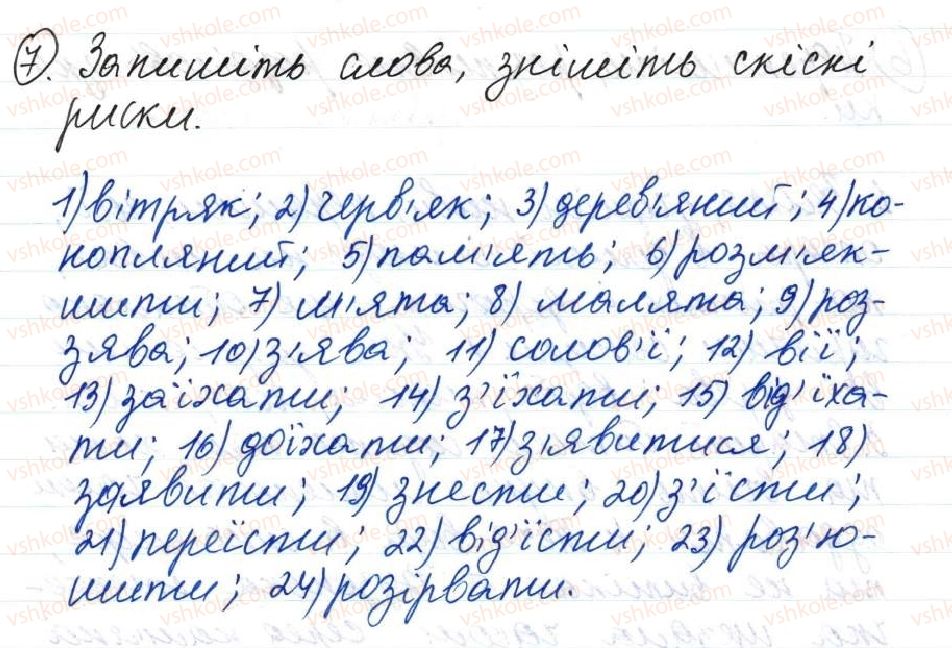 7. Запишіть слова, зніміть скісні
риски.
1) вітряк; 2) черв'як; 3) дерев'яний; 4) ко-
нопляний; 5) пам'ять; 6) розм'як-
шити; 7) м'ята; 8) малята; 9) роз-
зява; 10) з'ява; 11) солов'ї; 12) вії;
13) заїхати; 14) з'їхати; 15) від'їха-
ти; 16) доїхати; 17) з'явитися; 18)
заявити; 19) знести; 20) з'їсти;
21) переїсти; 22) від'їсти; 23) роз'ю-
шити; 24) розірвати.